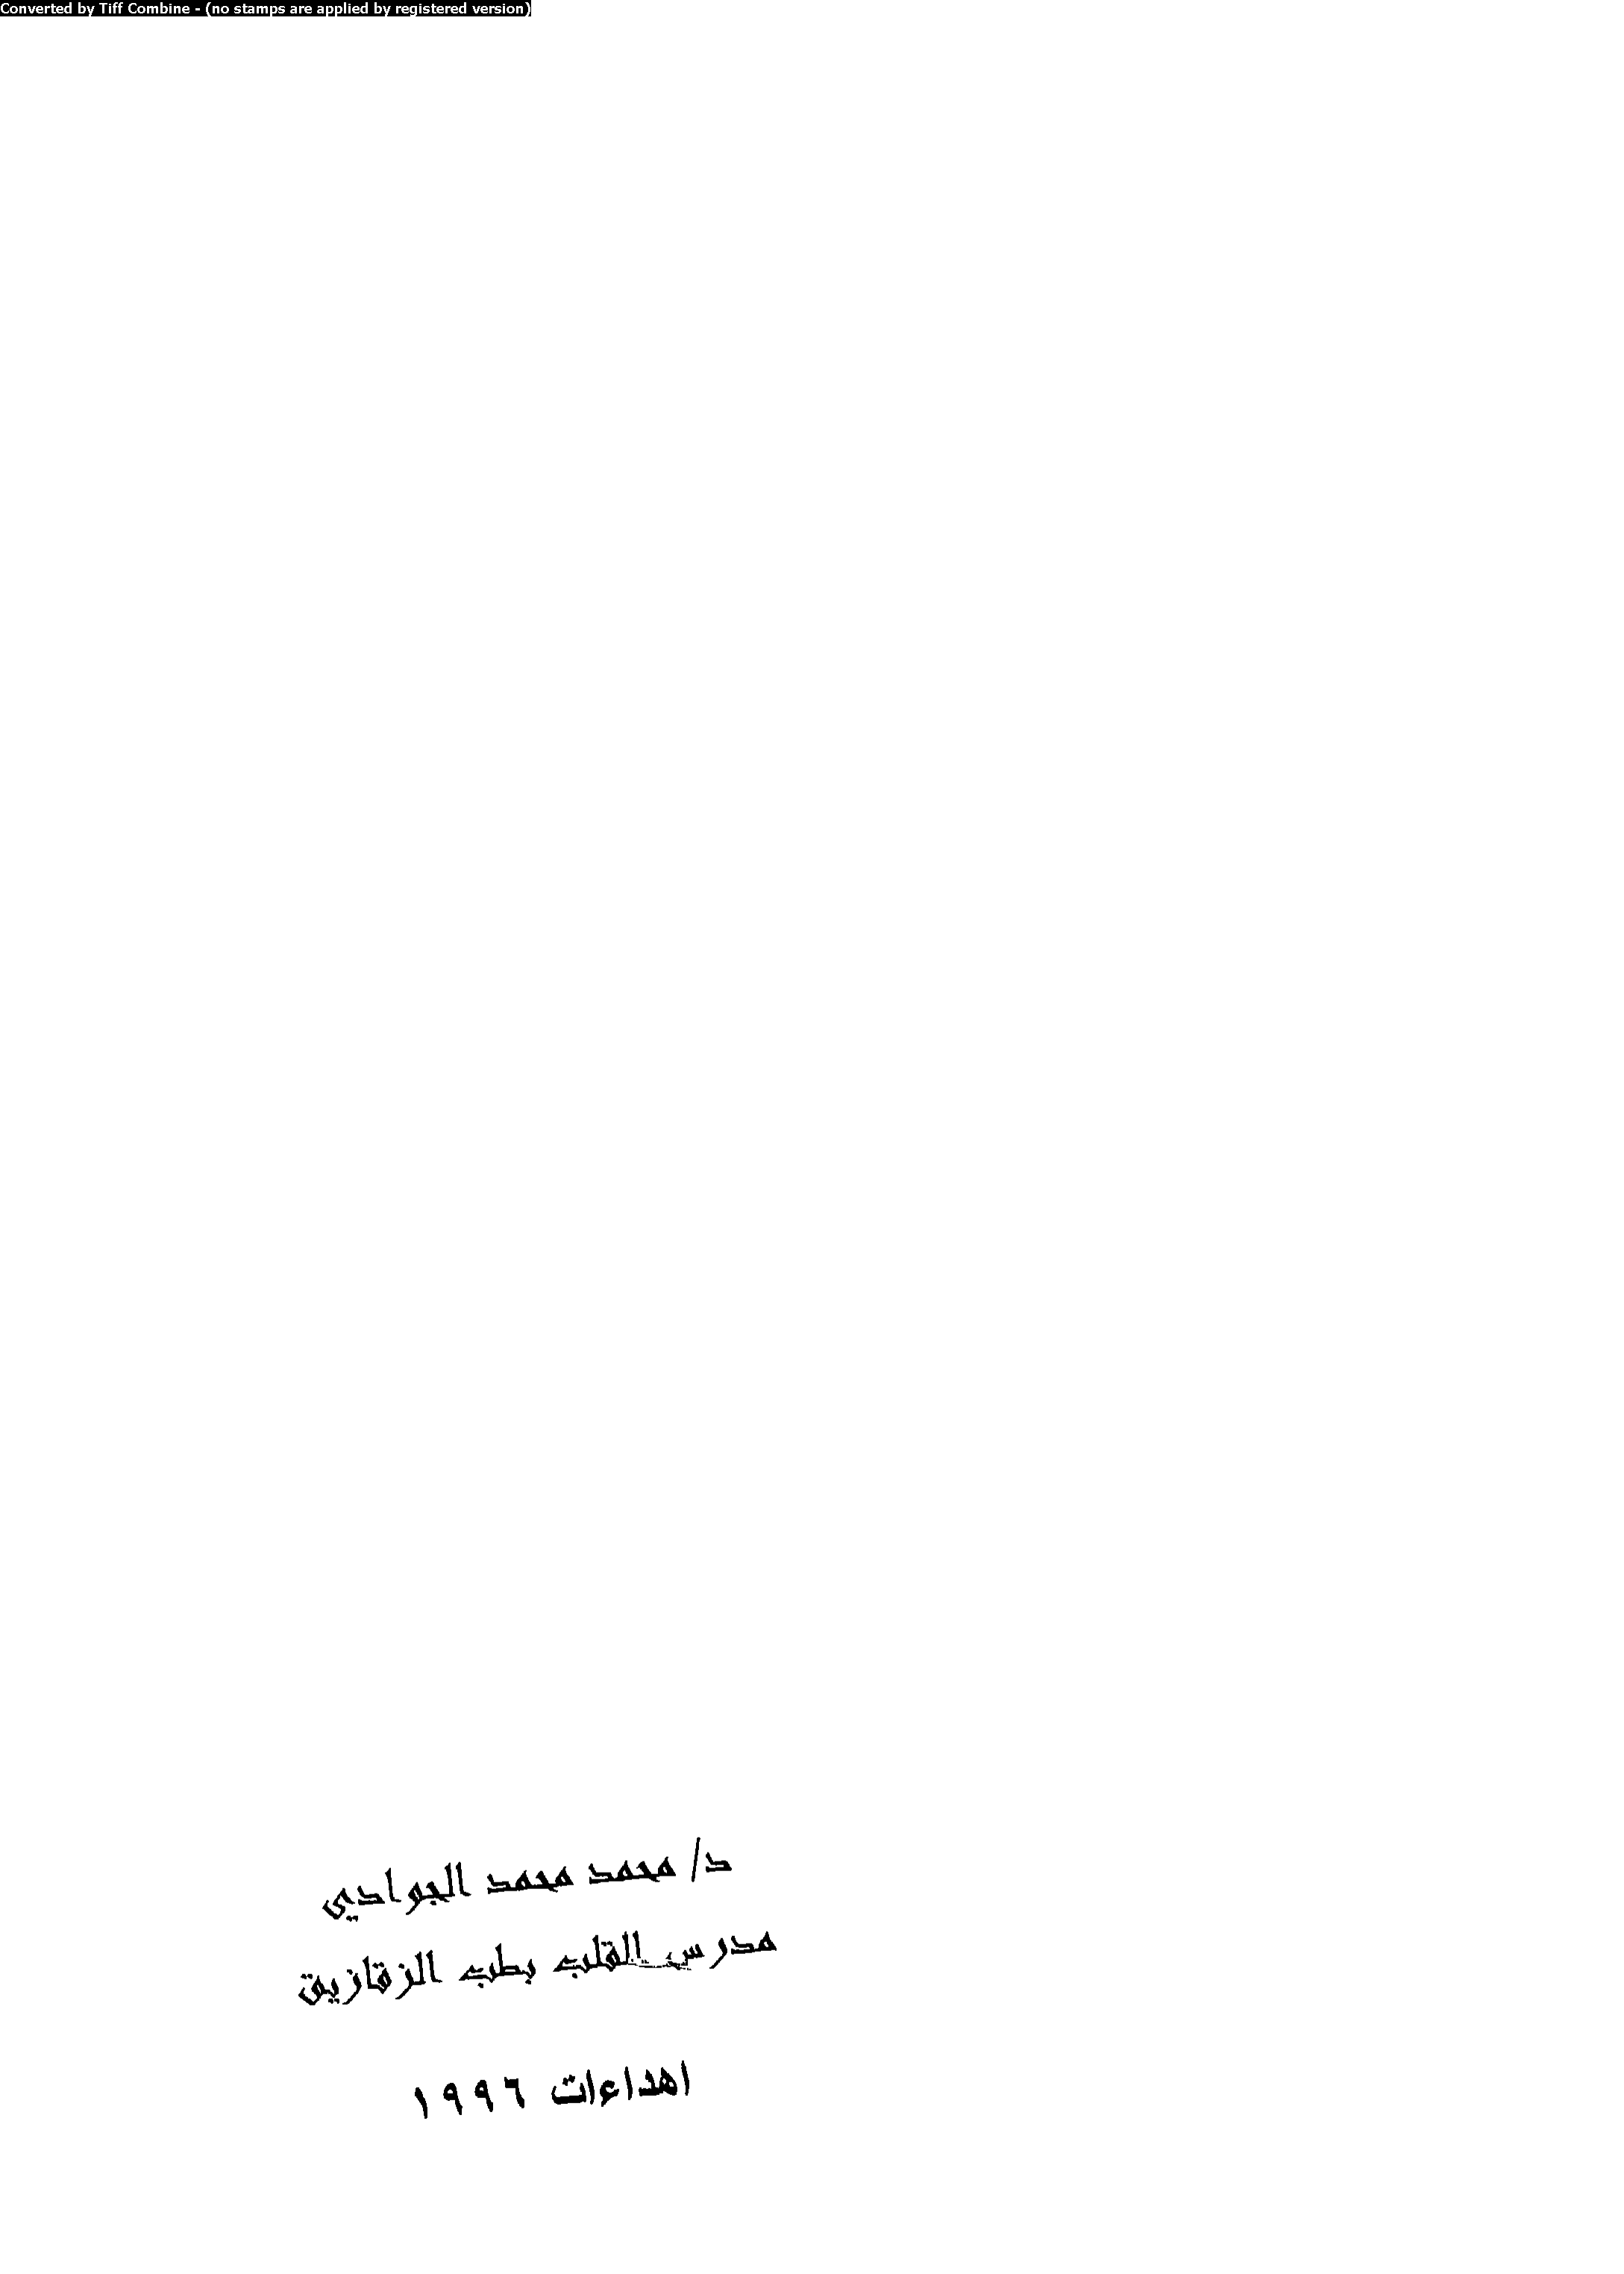 Converted by Tiff Combine - (no stamps are applied by registered version)
د/ محمد محمد الجوادي
مدرس القلب بطب الزقازيق
اهداءات ١٩٩٦